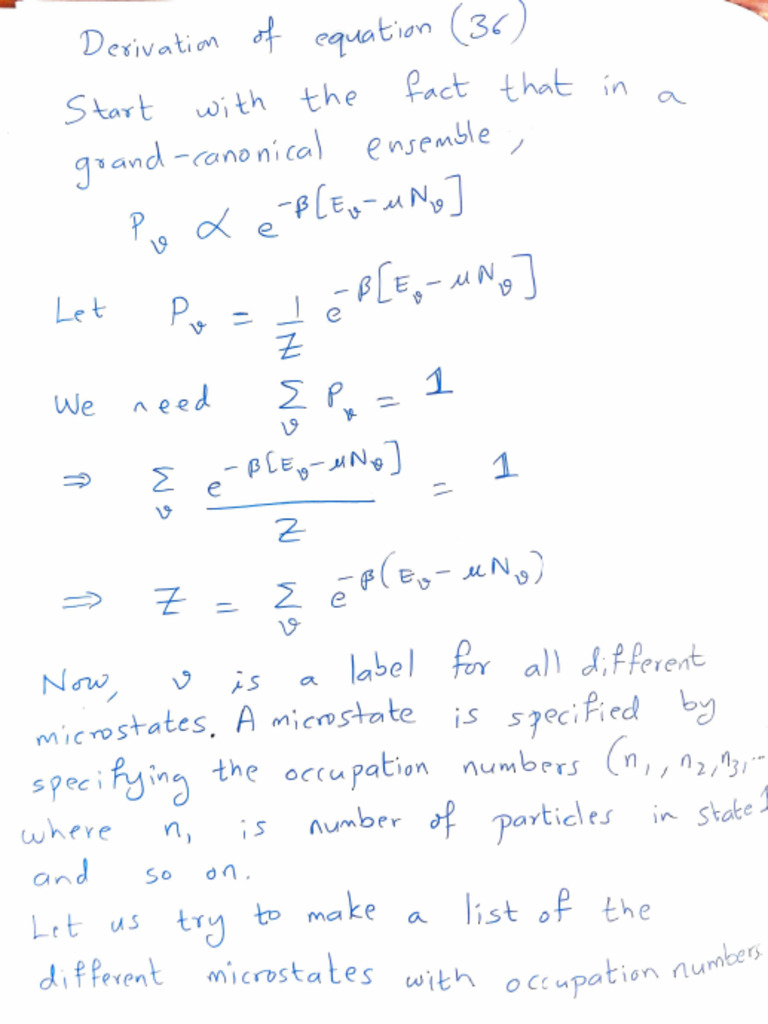 Derivation of equation (36)
Start with the fact that in a
grand-canonical ensemble,
P_ν ∝ e^{-β[E_ν-μN_ν]}
Let P_ν = 1/Z e^{-β[E_ν-μN_ν]}
We need Σ_ν P_ν = 1
⇒ Σ_ν e^{-β[E_ν-μN_ν]} / Z = 1
⇒ Z = Σ_ν e^{-β(E_ν-μN_ν)}
Now, ν is a label for all different
microstates. A microstate is specified by
specifying the occupation numbers (n₁, n₂, n₃, ...
where n₁ is number of particles in state 1
and so on.
Let us try to make a list of the
different microstates with occupation numbers